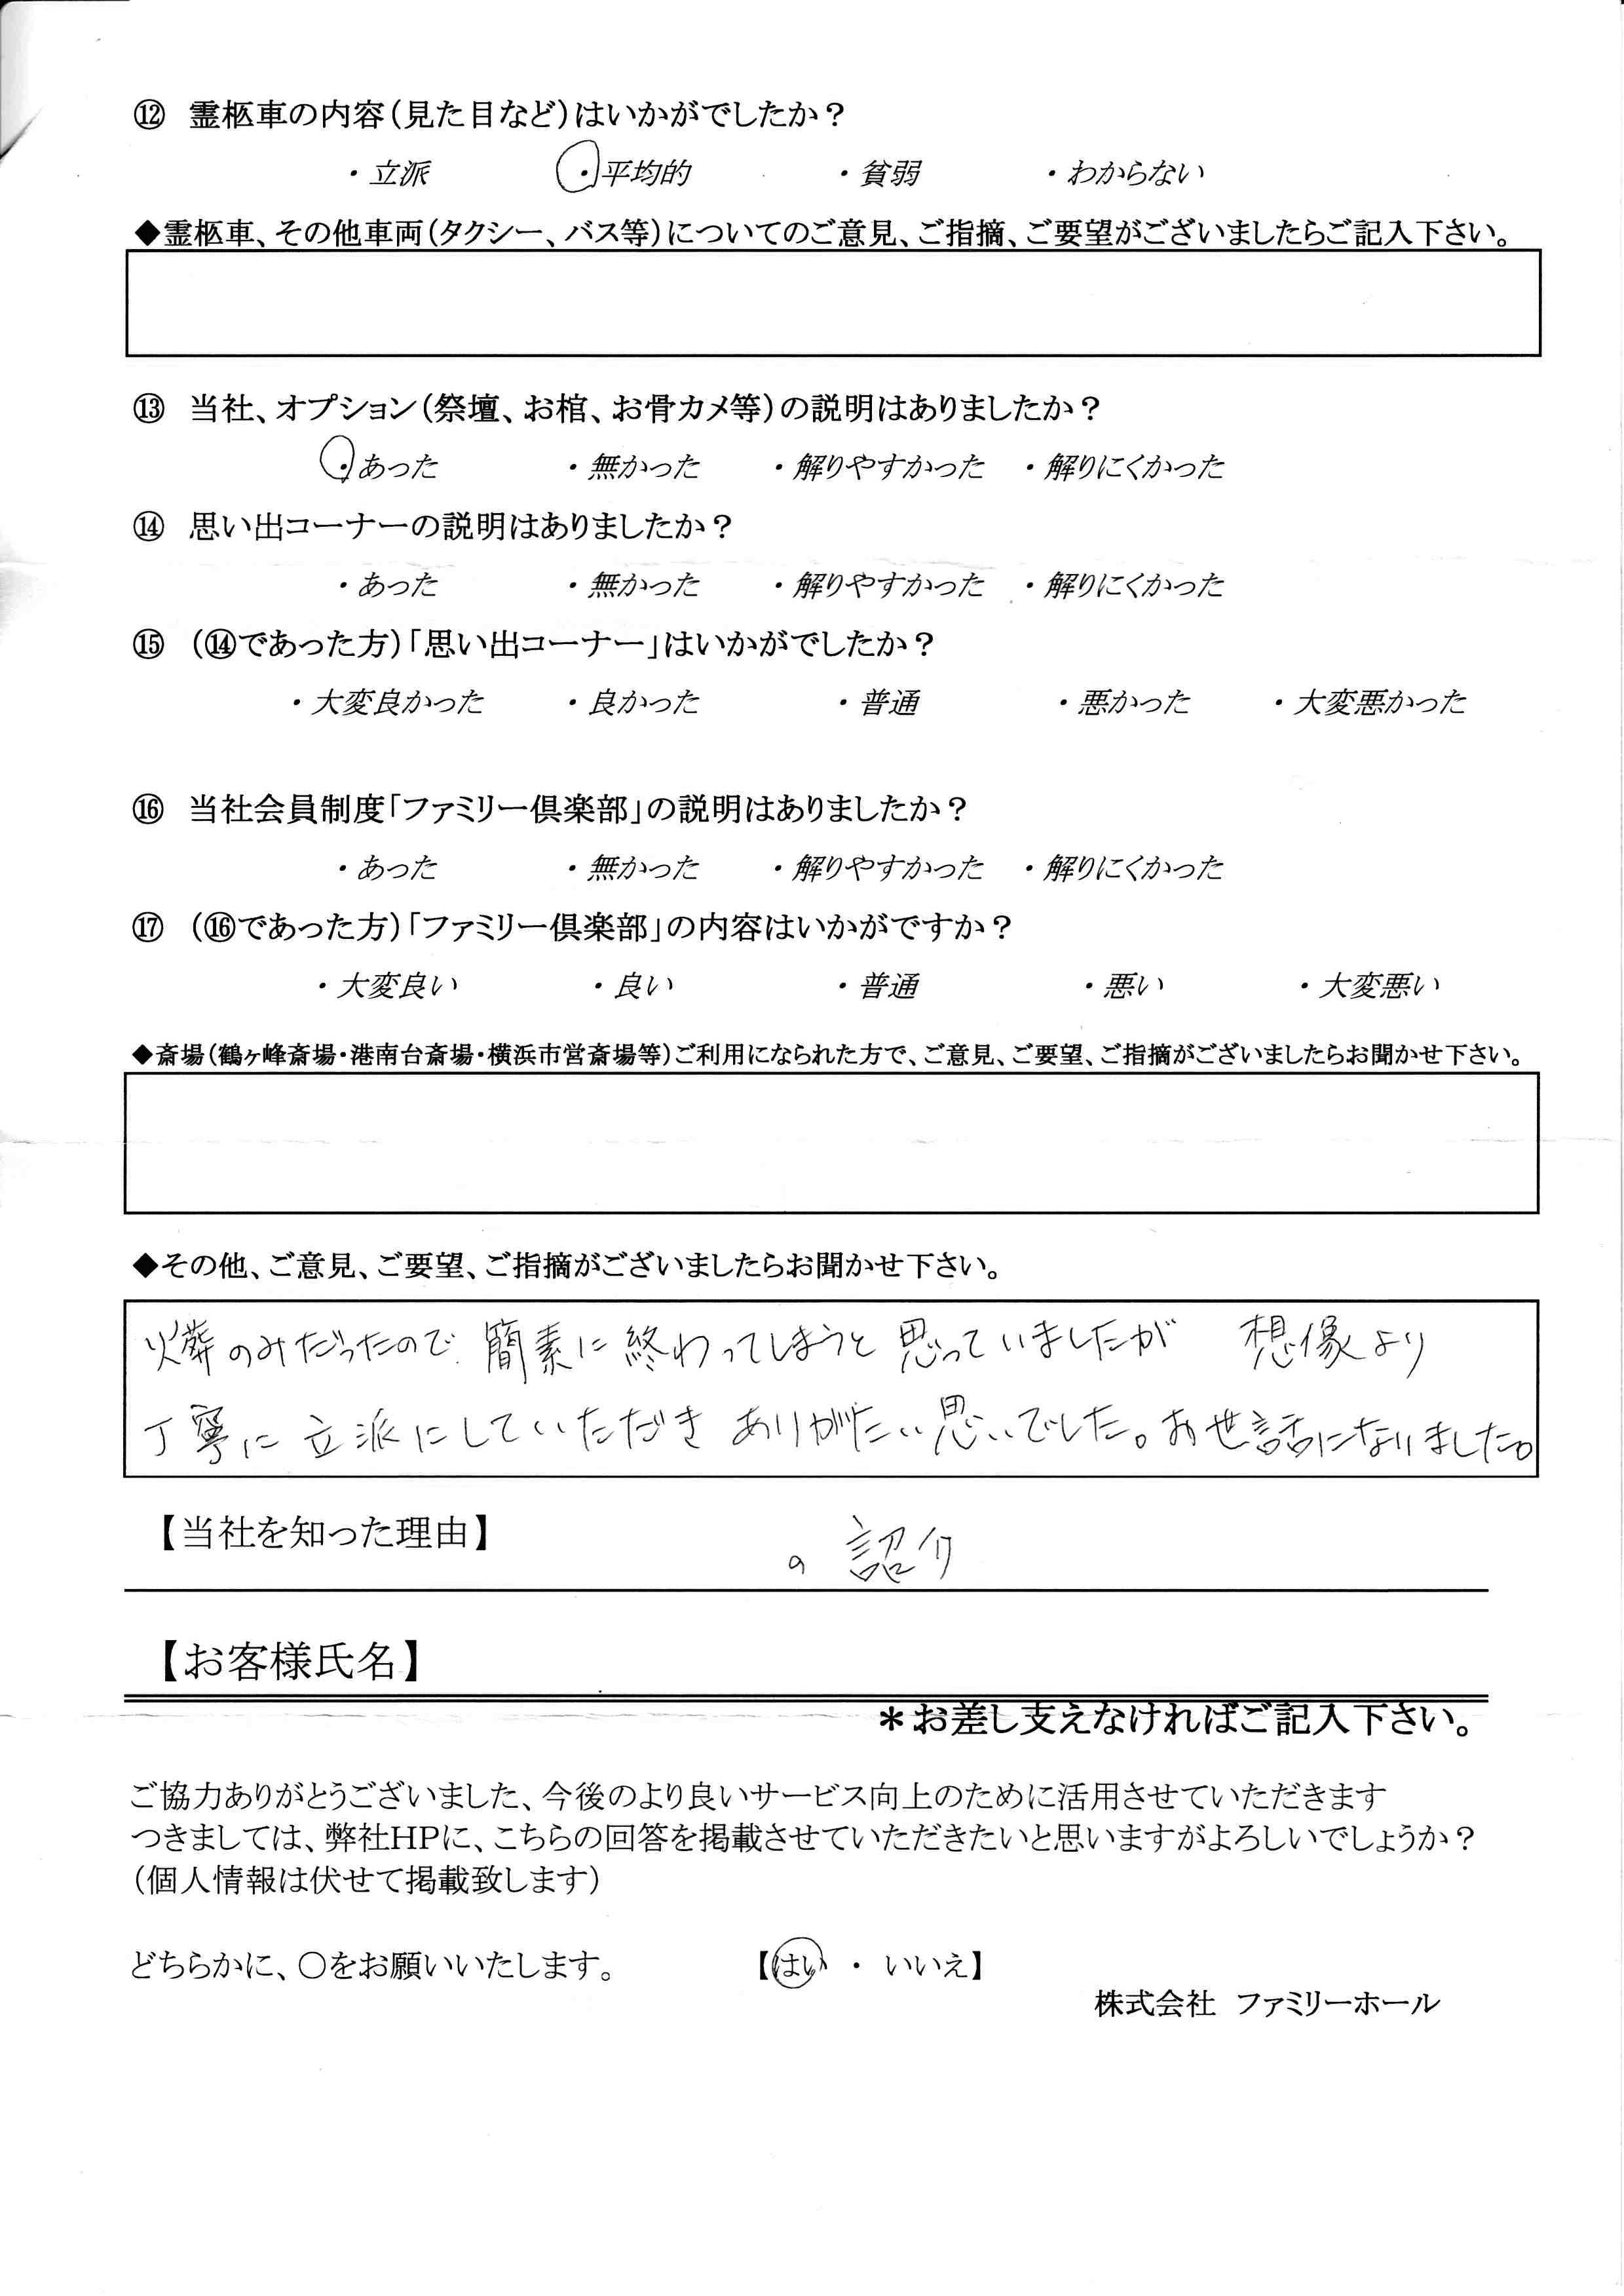 ⑫ 霊柩車の内容（見た目など）はいかがでしたか？
・立派 ・平均的 ・貧弱 ・わからない
◆霊柩車、その他車両（タクシー、バス等）についてのご意見、ご指摘、ご要望がございましたらご記入下さい。
⑬ 当社、オプション（祭壇、お棺、お骨カメ等）の説明はありましたか？
・あった ・無かった ・解りやすかった ・解りにくかった
⑭ 思い出コーナーの説明はありましたか？
・あった ・無かった ・解りやすかった ・解りにくかった
⑮ （⑭であった方）「思い出コーナー」はいかがでしたか？
・大変良かった ・良かった ・普通 ・悪かった ・大変悪かった
⑯ 当社会員制度「ファミリー倶楽部」の説明はありましたか？
・あった ・無かった ・解りやすかった ・解りにくかった
⑰ （⑯であった方）「ファミリー倶楽部」の内容はいかがですか？
・大変良い ・良い ・普通 ・悪い ・大変悪い
◆斎場（鶴ヶ峰斎場・港南台斎場・横浜市営斎場等）ご利用になられた方で、ご意見、ご要望、ご指摘がございましたらお聞かせ下さい。
◆その他、ご意見、ご要望、ご指摘がございましたらお聞かせ下さい。
火葬のみだったので 簡素に終わってしまうと思っていましたが 想像より
丁寧に立派にしていただき ありがたい思いでした。お世話になりました。
【当社を知った理由】 の 紹介
【お客様氏名】
＊お差し支えなければご記入下さい。
ご協力ありがとうございました、今後のより良いサービス向上のために活用させていただきます
つきましては、弊社HPに、こちらの回答を掲載させていただきたいと思いますがよろしいでしょうか？
（個人情報は伏せて掲載致します）
どちらかに、○をお願いいたします。 【はい ・ いいえ】
株式会社 ファミリーホール